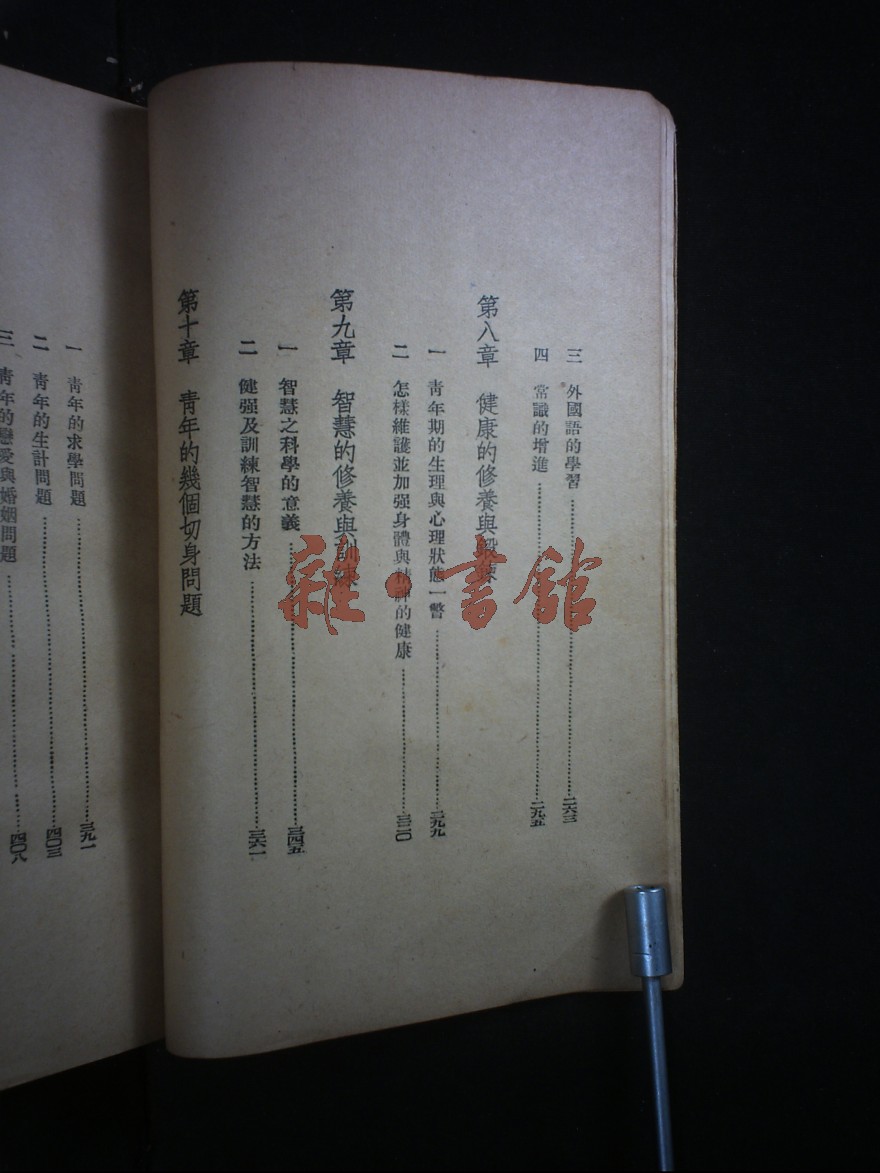 三 外國語的學習……二六三
四 常識的增進……二九五
第八章 健康的修養與鍛鍊
一 青年期的生理與心理狀態一瞥……二九九
二 怎樣維護並加强身體與精神的健康……三二〇
第九章 智慧的修養與訓練
一 智慧之科學的意義……三四五
二 健强及訓練智慧的方法……三六一
第十章 青年的幾個切身問題
一 青年的求學問題……三九一
二 青年的生計問題……四〇三
三 青年的戀愛與婚姻問題……四〇八
雜·書館